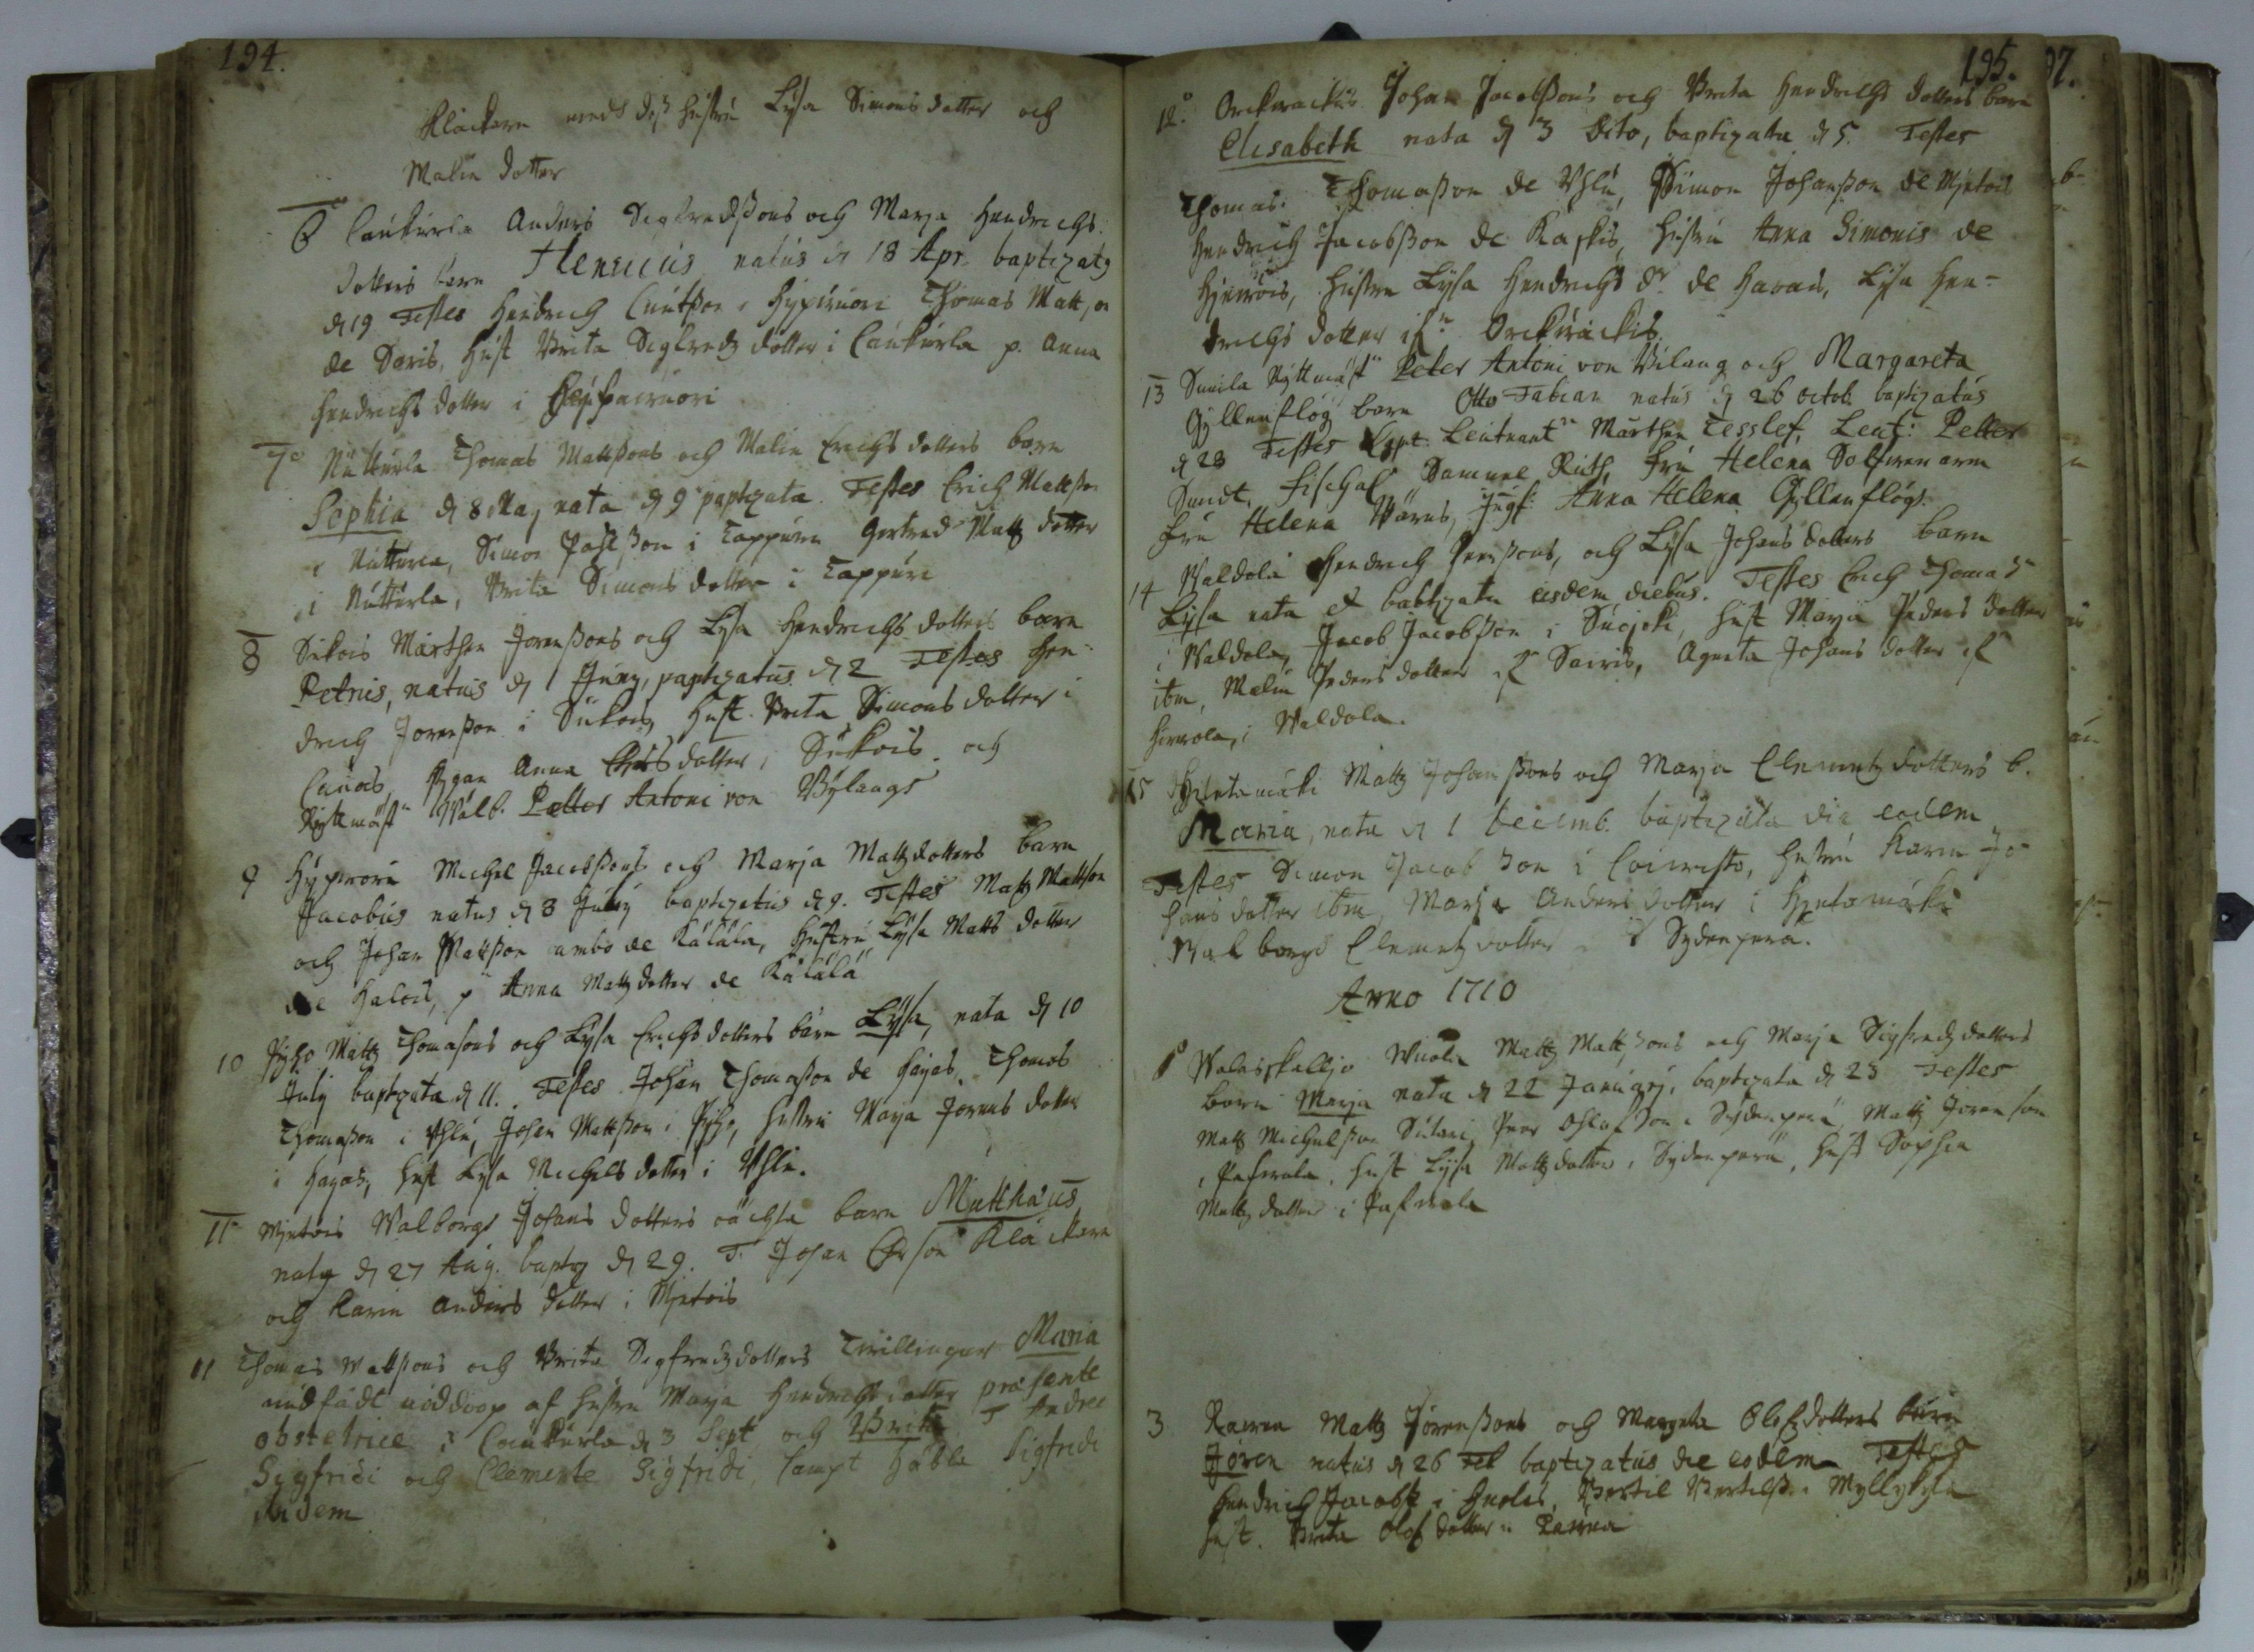 194.
Klåckaren medh dess hustru Lysa Simons dotter och
Malin dotter
6 Caukurla Anders Sigfredßons och Marja Hendrichs
dotters barn Henricus natus d 18 Apr. baptizatg
d 19 Testes Hendrich Cnutßon i Hypirvori Thomas Matt,on
de Saris, Hust Brita Sigfredz dotter i Caukurla p. Anna
Hendrichs dotter i
7 Nutturla Thomas Mattßons och Malin Erichs dotters barn
Sophia d 8 May nata d 9 paptizata Testes Erich Mattßon
i Nutturla, Simon Påhlßon i Tappuri Gertrud Matz dotter
i Nutturla, Brita Simons dotter i Tappuri
8 Sukois Marthen Jorenßons och Lysa Hendrichs dotters barn
Petrus, natus d 1 Juny, paptizatus d 2 Testes Hen-
drich Jorenßon i Sukois, Hust. Brita Simons dotter i
Canas, Pigan Anna dotter i Sukois och
Ryttmäst Wälb. Petter Antoni von Bylangs
9 Hypirvori Michel Jacobßons och Marja Mattzdotters barn
Jacobus natus d 8 July baptizatus d 9. Testes Matz Mattßon
och Johan Mattßon ambo de Kälälä, Hustru Lysa Matts dotter
de Halois, p Anna Mattz dotter de Kälälä
10 Pyhö Mattz Thomasons och Lysa Erichs dotters barn Lysa, nata d 10
July baptizata d 11. Testes Johan Thomaßon de Hajas, Thomas
Thomaßon i Uhlu, Johan Mattßon i Pyhö, hustru Marja Jorens dotter
i Hajas, hust Lysa Michels dotter i Uhlu.
11 Mjetois Walborgs Johans dotters oächta barn Matthæus
natg d 27 Aug. baptz d 29. T. Johan Ersson Klåckaren
och Karin Anders dotter i Mjetois
11 Thomas Mattßons och Brita Sigfredzdotters Twillingar Maria
nödfödt nöddoop af hustru Marja Hendrichs dotter præsente
obstetrice i Caukurla d 3 Sept och Brita T Andree
Sygfridi och Clemente Sigfridi, sampt Häbla Sigfridi
ibidem
195.
12. Orckwackis Johan Jacobßons och Brita Hendrichs dotters barn
Elisabeth nata d 3 Octo, baptizata d 5. Testes
Thomas Thomaßon de Uhlu, Simon Johanßon de Mjetois
Hendrich Jacobßon de Kaskis, Hustru Anna Simonis de
Hjerrois, hustru Lysa Hendrichs dr de Havais, Lysa Hen-
drichs dotter if Orckwackis.
13 Sunila Ryttmäst Peter Antoni von Bilang och Margareta
Gyllenflög barn Otto Fabian natus d 26 octob. baptizatus
d 28 Testes Capt. Leutnant Marthen Tesslef, Leut: Petter
Sundt, Fischal Samuel Ruth, Fru Helena
Fru Helena Wärns, Jugf: Anna Helena Gyllenflögs.
14 Waldola Hendrich ßons, och Lysa Johans dotters barn
Lysa nata et babtizata eisdem diebus. Testes Erich Thoma
i Waldola, Jacob Jacobßon i Suojoki, Hust Marja Peders dotter
ibm, Malin Peders dotter if Sairis, Agneta Johans dotter if
i Waldola.
15 Hietamäki Mattz Johanßons och Marja Clemetzdotters b.
Maria, nata d 1 Decemb. baptizata die eodem
Testes Simon Jacob Son i Coivisto, hustru Karin Jo-
hans dotter ibm, Marja Anders dotter i Hjetamäki
Walborgs Clemetzdotter i Sydenpera.
Anno 1710
1 Walaskalljo Mattz Matt,sons och Marja Sigfredzdotters
barn Marja nata d 22 Januarj, baptizata d 23 Testes
Matz Michelßon Sutari, Olofson i Sydenpera, Mattz Jorenson
i Pahvala, hust Lysa Mattzdotter i Sydenpera, hust Sophia
Mattz dotter i Pahvala
3 Mattz Jörenßons och Margeta Olofzdotters barn
Jören natus d 26 Feb baptizatus die eodem Testes
Hendrich Jacobß i Bertil Bertilß i Myllykyla
hust. Brita Olofs dotter i